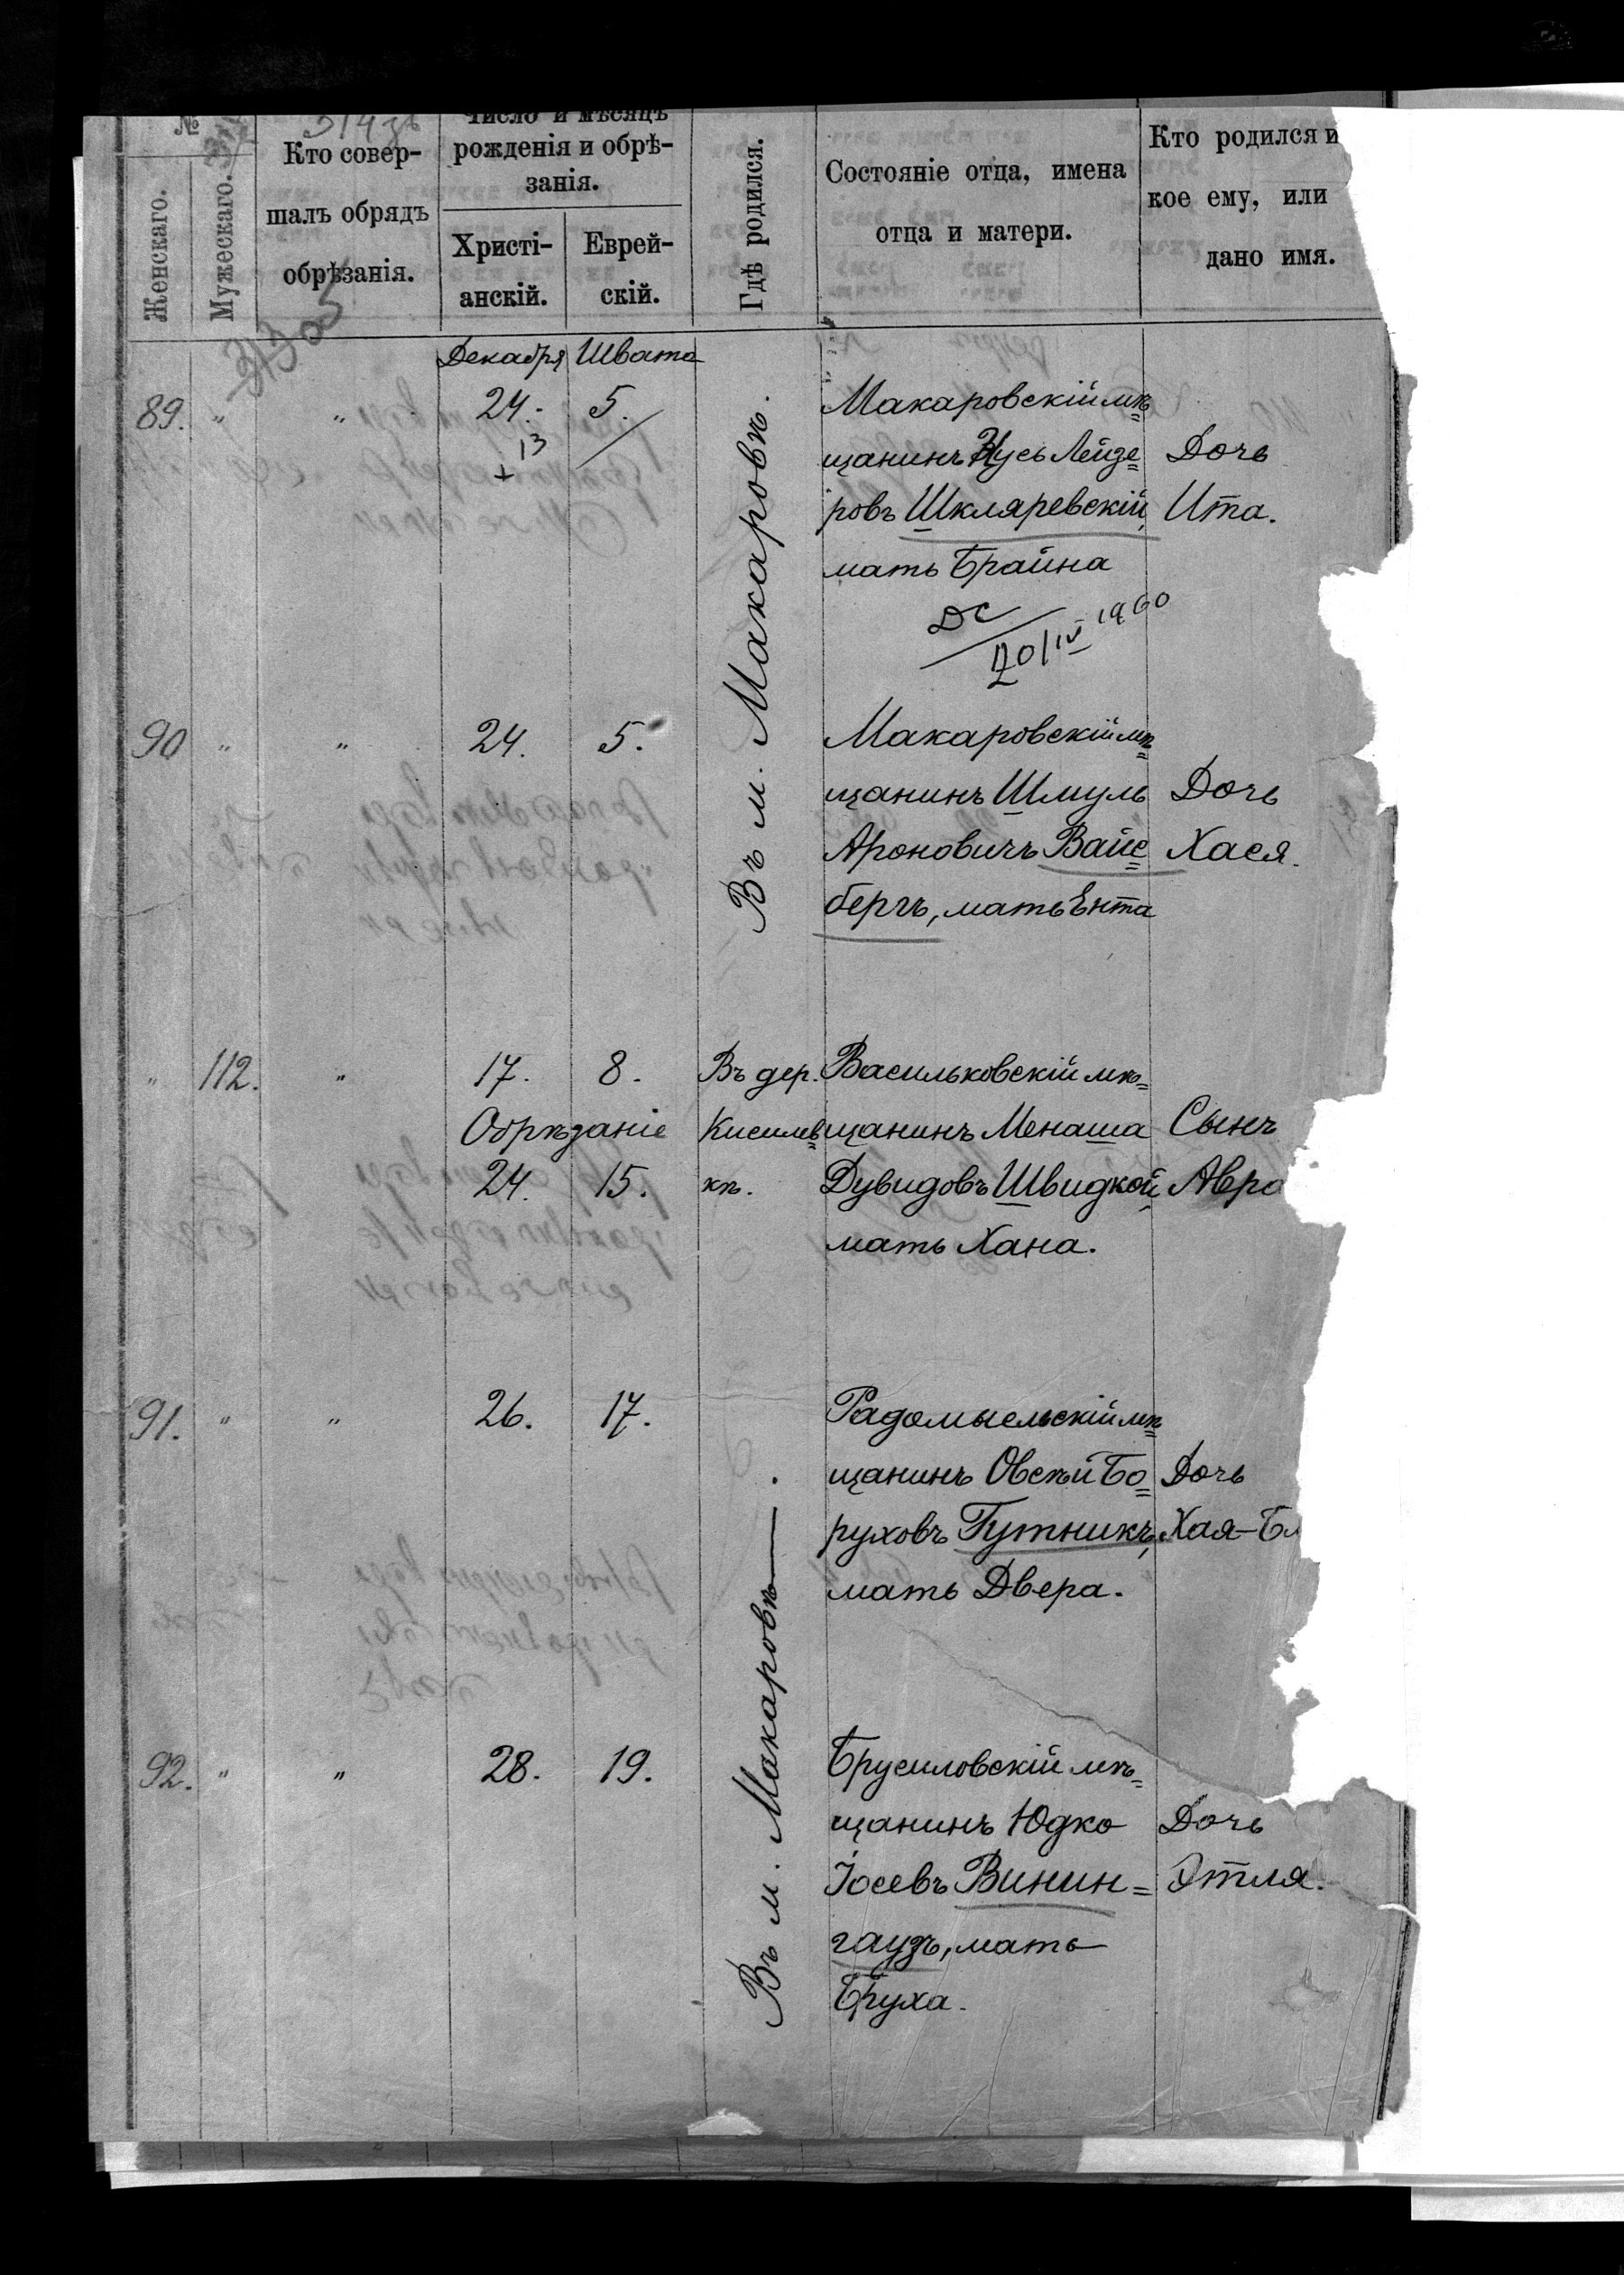 №
Женскаго.
Мужескаго.
Кто совер-
шалъ обрядъ
обрѣзанія.
Число и мѣсяцъ
рожденія и обрѣ-
занія.
Христі-
анскій.
Еврей-
скій.
Гдѣ родился.
Состояніе отца, имена
отца и матери.
Кто родился и
кое ему, или
дано имя.
Декабря Швата
89. " " 24. 5.
+ 13
Въ м. Макаровѣ.
Макаровскій мѣ=
щанинъ Нусь Лейзе=
ровъ Шкляревскій,
мать Брайна
Дочь
Ита.
20/IV 1960
90 " " 24. 5.
Макаровскій мѣ=
щанинъ Шмуль
Ароновичъ Вайс=
бергъ, мать Ента
Дочь
Хася.
" 112. " 17. 8.
Обрѣзаніе
24. 15.
Въ дер.
Кисилев=
кѣ.
Васильковскій мѣ=
щанинъ Менаша
Дувидовъ Швидкой,
мать Хана.
Сынъ
Авро
91. " " 26. 17.
Въ м. Макаровѣ.
Радомысльскій мѣ=
щанинъ Овсѣй Бо=
руховъ Гутникъ,
мать Двера.
Дочь
Хая-Б
92. " " 28. 19.
Брусиловскій мѣ=
щанинъ Юдко
Іосевъ Винин=
гаузъ, мать
Бруха.
Дочь
Этля.